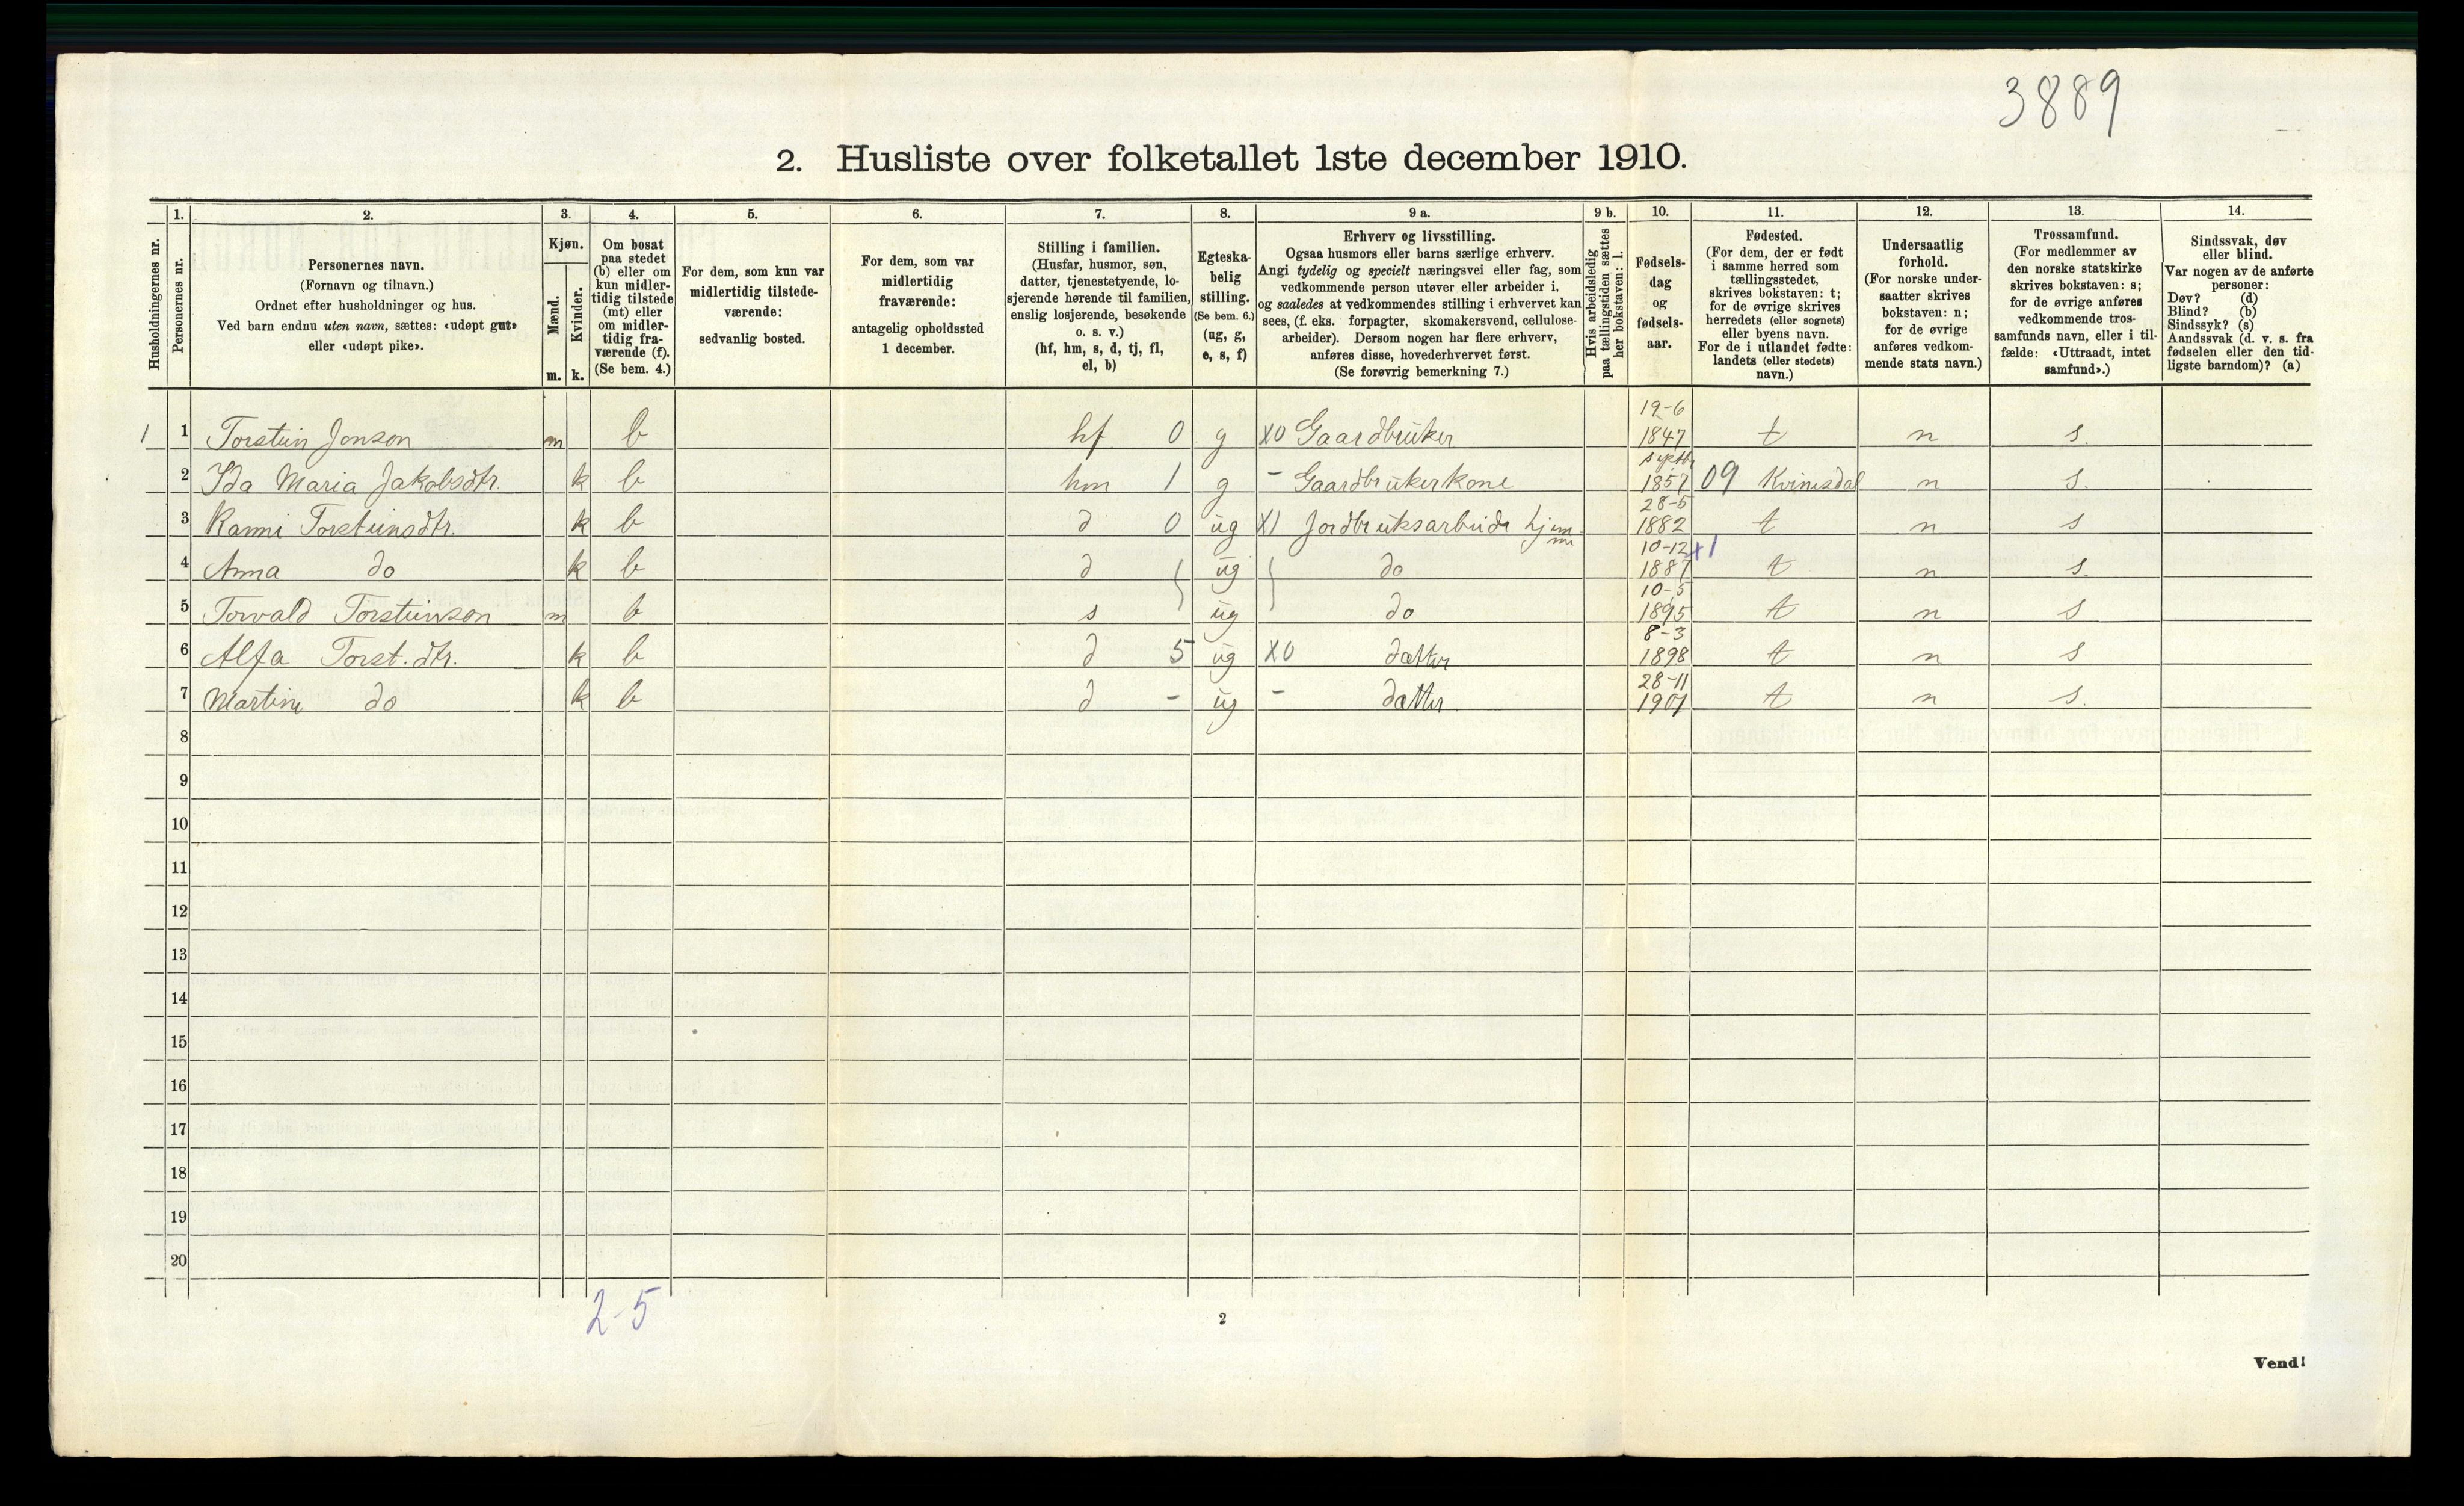 3889
2. Husliste over folketallet 1ste december 1910.
Husholdningernes nr.
1. Personernes nr.
2. Personernes navn. (Fornavn og tilnavn.) Ordnet efter husholdninger og hus. Ved barn endnu uten navn, sættes: «udøpt gut» eller «udøpt pike».
3. Kjøn. Mænd. m. Kvinder. k.
4. Om bosat paa stedet (b) eller om kun midler-tidig tilstede (mt) eller om midler-tidig fra-værende (f). (Se bem. 4.)
5. For dem, som kun var midlertidig tilstede-værende: sedvanlig bosted.
6. For dem, som var midlertidig fraværende: antagelig opholdssted 1 december.
7. Stilling i familien. (Husfar, husmor, søn, datter, tjenestetyende, lo-sjerende hørende til familien, enslig losjerende, besøkende o. s. v.) (hf, hm, s, d, tj, fl, el, b)
8. Egteska-belig stilling. (Se bem. 6.) (ug, g, e, s, f)
9 a. Erhverv og livsstilling. Ogsaa husmors eller barns særlige erhverv. Angi tydelig og specielt næringsvei eller fag, som vedkommende person utøver eller arbeider i, og saaledes at vedkommendes stilling i erhvervet kan sees, (f. eks. forpagter, skomakersvend, cellulose-arbeider). Dersom nogen har flere erhverv, anføres disse, hovederhvervet først. (Se forøvrig bemerkning 7.)
9 b. Hvis arbeidsledig paa tællingstiden sættes her bokstaven: l.
10. Fødsels-dag og fødsels-aar.
11. Fødested. (For dem, der er født i samme herred som tællingsstedet, skrives bokstaven: t; for de øvrige skrives herredets (eller sognets) eller byens navn. For de i utlandet fødte: landets (eller stedets) navn.)
12. Undersaatlig forhold. (For norske under-saatter skrives bokstaven: n; for de øvrige anføres vedkom-mende stats navn.)
13. Trossamfund. (For medlemmer av den norske statskirke skrives bokstaven: s; for de øvrige anføres vedkommende tros-samfunds navn, eller i til-fælde: «Uttraadt, intet samfund».)
14. Sindssvak, døv eller blind. Var nogen av de anførte personer: Døv? (d) Blind? (b) Sindssyk? (s) Aandssvak (d. v. s. fra fødselen eller den tid-ligste barndom)? (a)
1 1 Torstein Jonson m b hf 0 g X0 Gaardbruker 19-6 1847 t n s.
2 Ida Maria Jakobsdtr. k b hm 1 g - Gaardbrukerkone septbr 1857 09 Kvinesdal n s.
3 Ranni Torsteinsdtr. k b d 0 ug X1 Jordbruksarbeide hjemme 28-5 1882 t n s
4 Anna do k b d ug do 10-12 1887 x1 t n s.
5 Torvald Torsteinson m b s ug do 10-5 1895 t n s
6 Alfa Torst.dtr. k b d 5 ug X0 datter 8-3 1898 t n s
7 Martine do k b d - ug - datter 28-11 1901 t n s.
8
9
10
11
12
13
14
15
16
17
18
19
20
2-5
2
Vend!